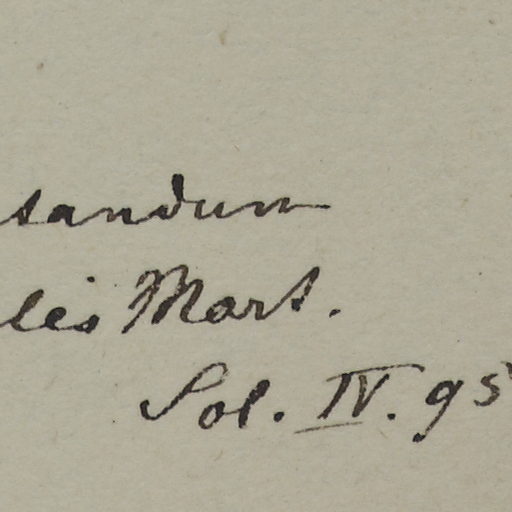 sandum
les Mart.
Sol. IV. 95